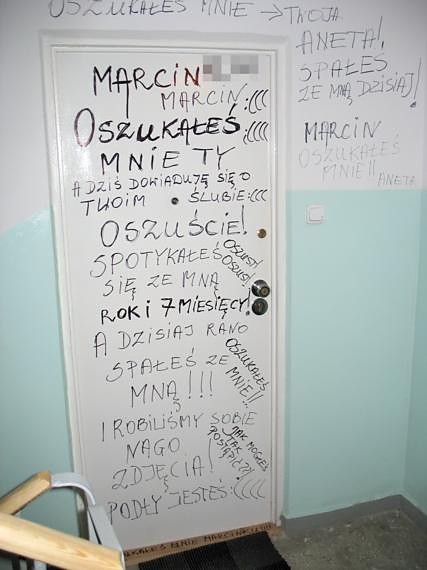 OSZUKAŁEŚ MNIE → TWOJA
ANETA!
SPAŁEŚ
ZE MNĄ DZISIAJ!
MARCIN
OSZUKAŁEŚ
MNIE!!
ANETA
MARCIN
MARCIN :(((
OSZUKAŁEŚ :((((
MNIE TY
A DZIŚ DOWIADUJĘ SIĘ O
TWOIM ŚLUBIE :(((
OSZUŚCIE!
SPOTYKAŁEŚ
SIĘ ZE MNĄ
OSZUST!
OSZUST!
ROK I 7 MIESIĘCY!
A DZISIAJ RANO
SPAŁEŚ ZE
MNĄ!!!
OSZUKAŁEŚ
MNIE!!
I ROBILIŚMY SOBIE
NAGO
ZDJĘCIA!
JAK MOGŁEŚ
TAK
POSTĄPIĆ?!
PODŁY JESTEŚ :((((
MNIE